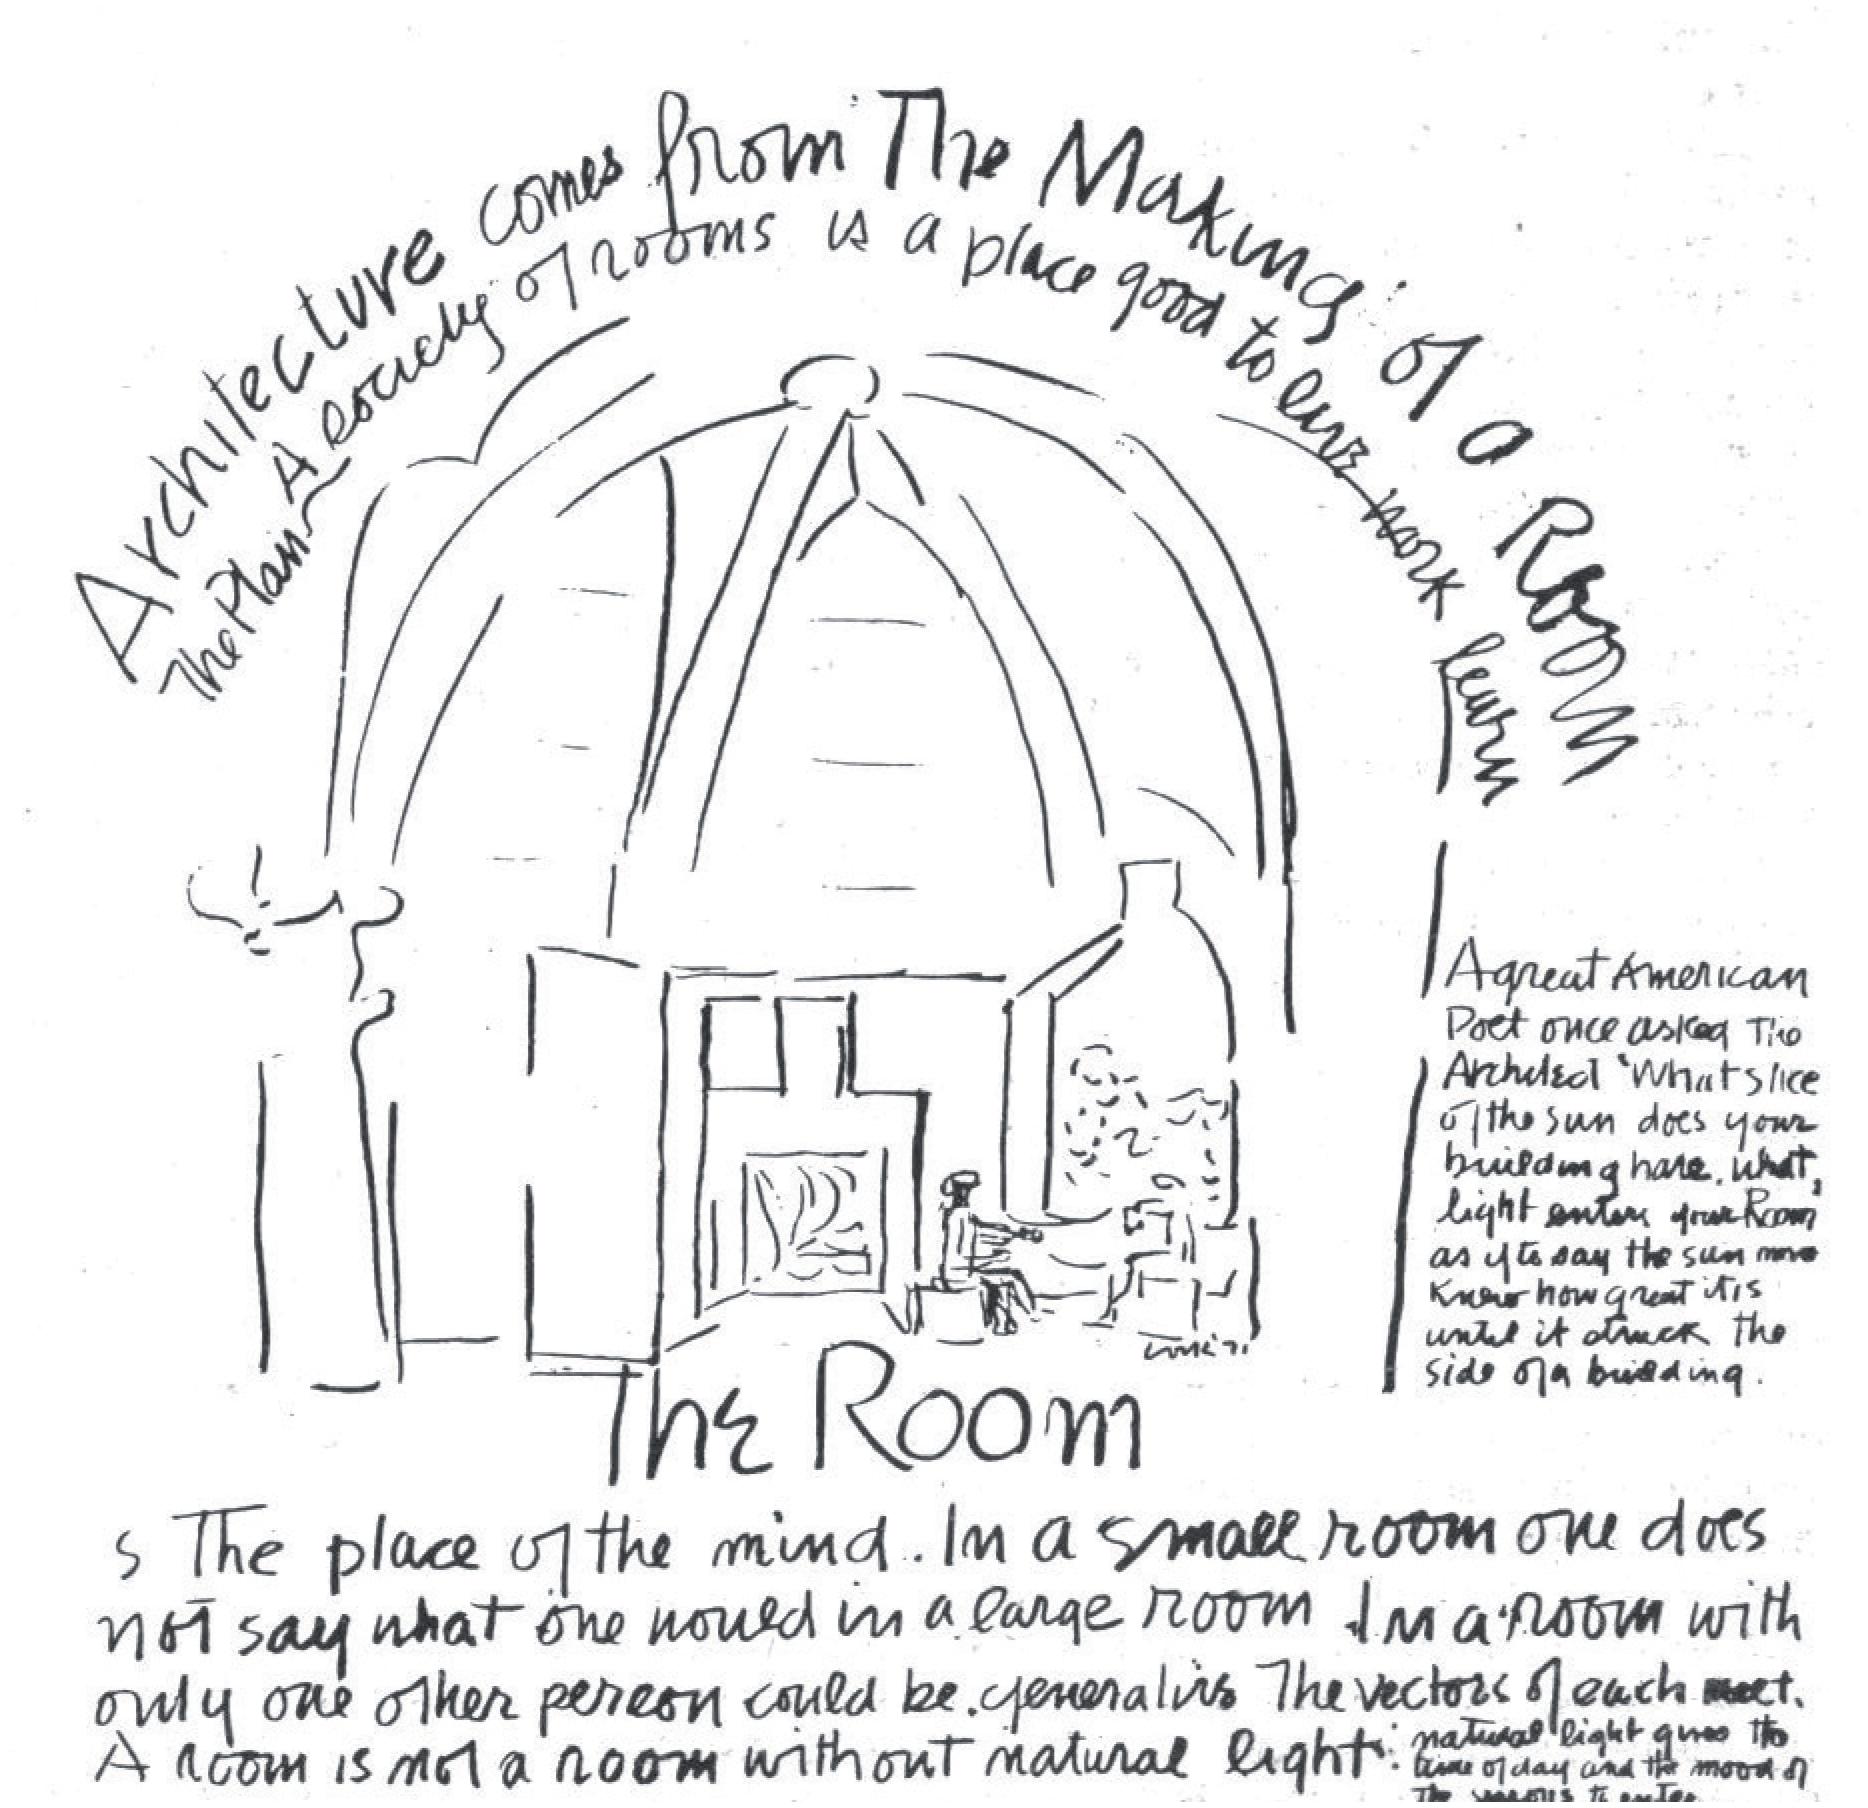 Architecture comes from The Making of a Room
The Plan A society of rooms is a place good to live work learn
A great American
Poet once asked The
Architect 'What slice
of the sun does your
building have. What
light enters your Room
as if to say the sun never
knew how great it is
until it struck the
side of a building.
The Room
s The place of the mind. In a small room one does
not say what one would in a large room In a room with
only one other person could be generative The vectors of each meet.
A room is not a room without natural light
natural light gives the
time of day and the mood of
The seasons to enter